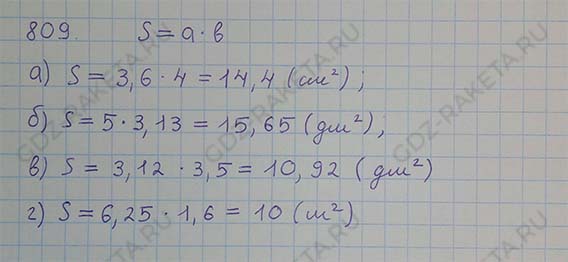 809. S = a · b
а) S = 3,6 · 4 = 14,4 (см²);
б) S = 5 · 3,13 = 15,65 (дм²);
в) S = 3,12 · 3,5 = 10,92 (дм²)
г) S = 6,25 · 1,6 = 10 (м²)
GDZ-RAKETA.RU